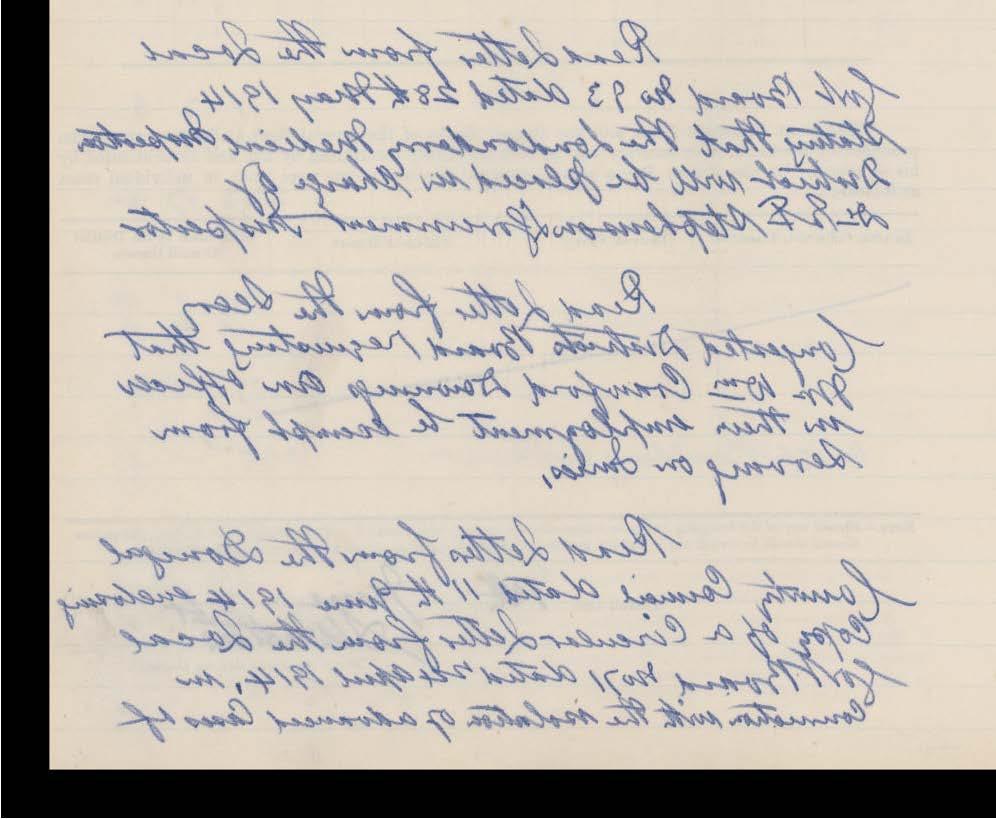 Read Letter from the Local
Govt Board No 93 dated 28th May 1914
Stating that the Londonderry Medical Inspection
District will be placed in charge of
Dr E F Stephenson, Government Inspector
Read Letter from the Secy
Congested Districts Board requesting that
Mr Wm Crawford Downing an officer
in their employment be exempt from
Serving on Juries,
Read Letter from the Donegal
County Council dated 11th June 1914 enclosing
Copy of a Circular Letter from the Local
Govt Board No 71 dated 24 April 1914, in
Connection with the isolation of advanced Cases of